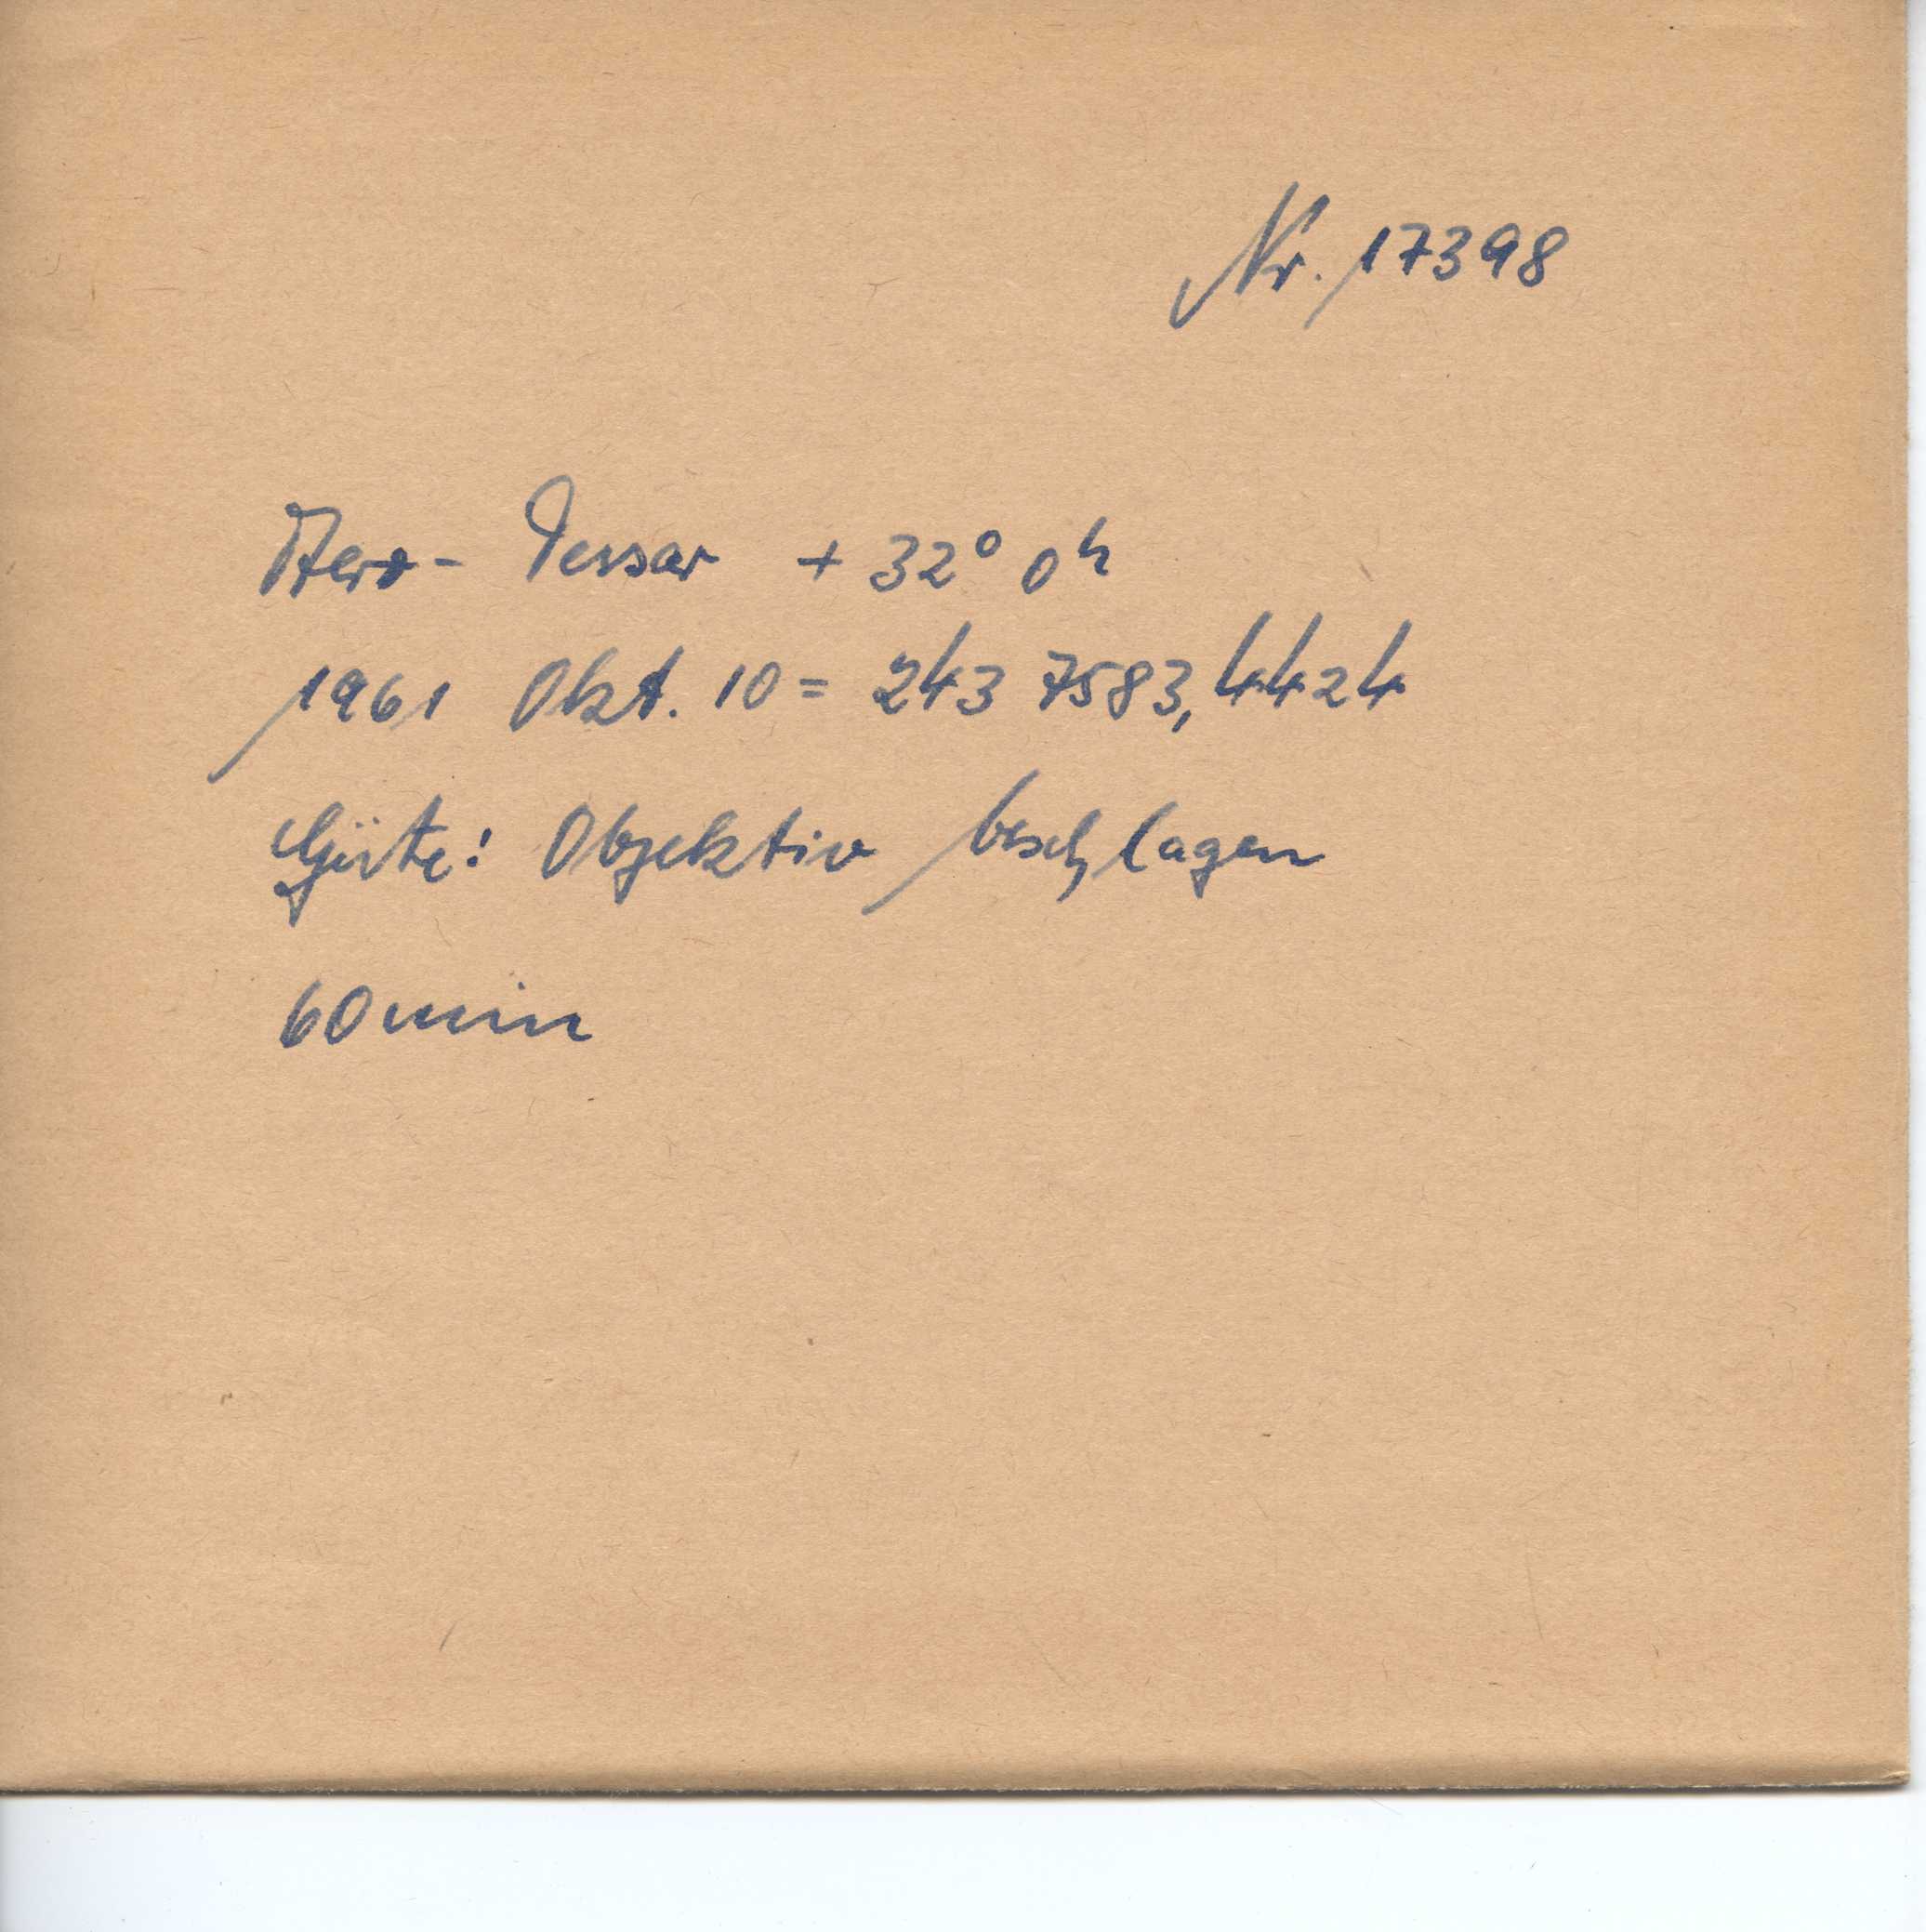 Nr. 17398
Aero- Tessar + 32° 0ʰ
1961 Okt. 10 = 243 7583,4424
Güte: Objektiv beschlagen
60 min